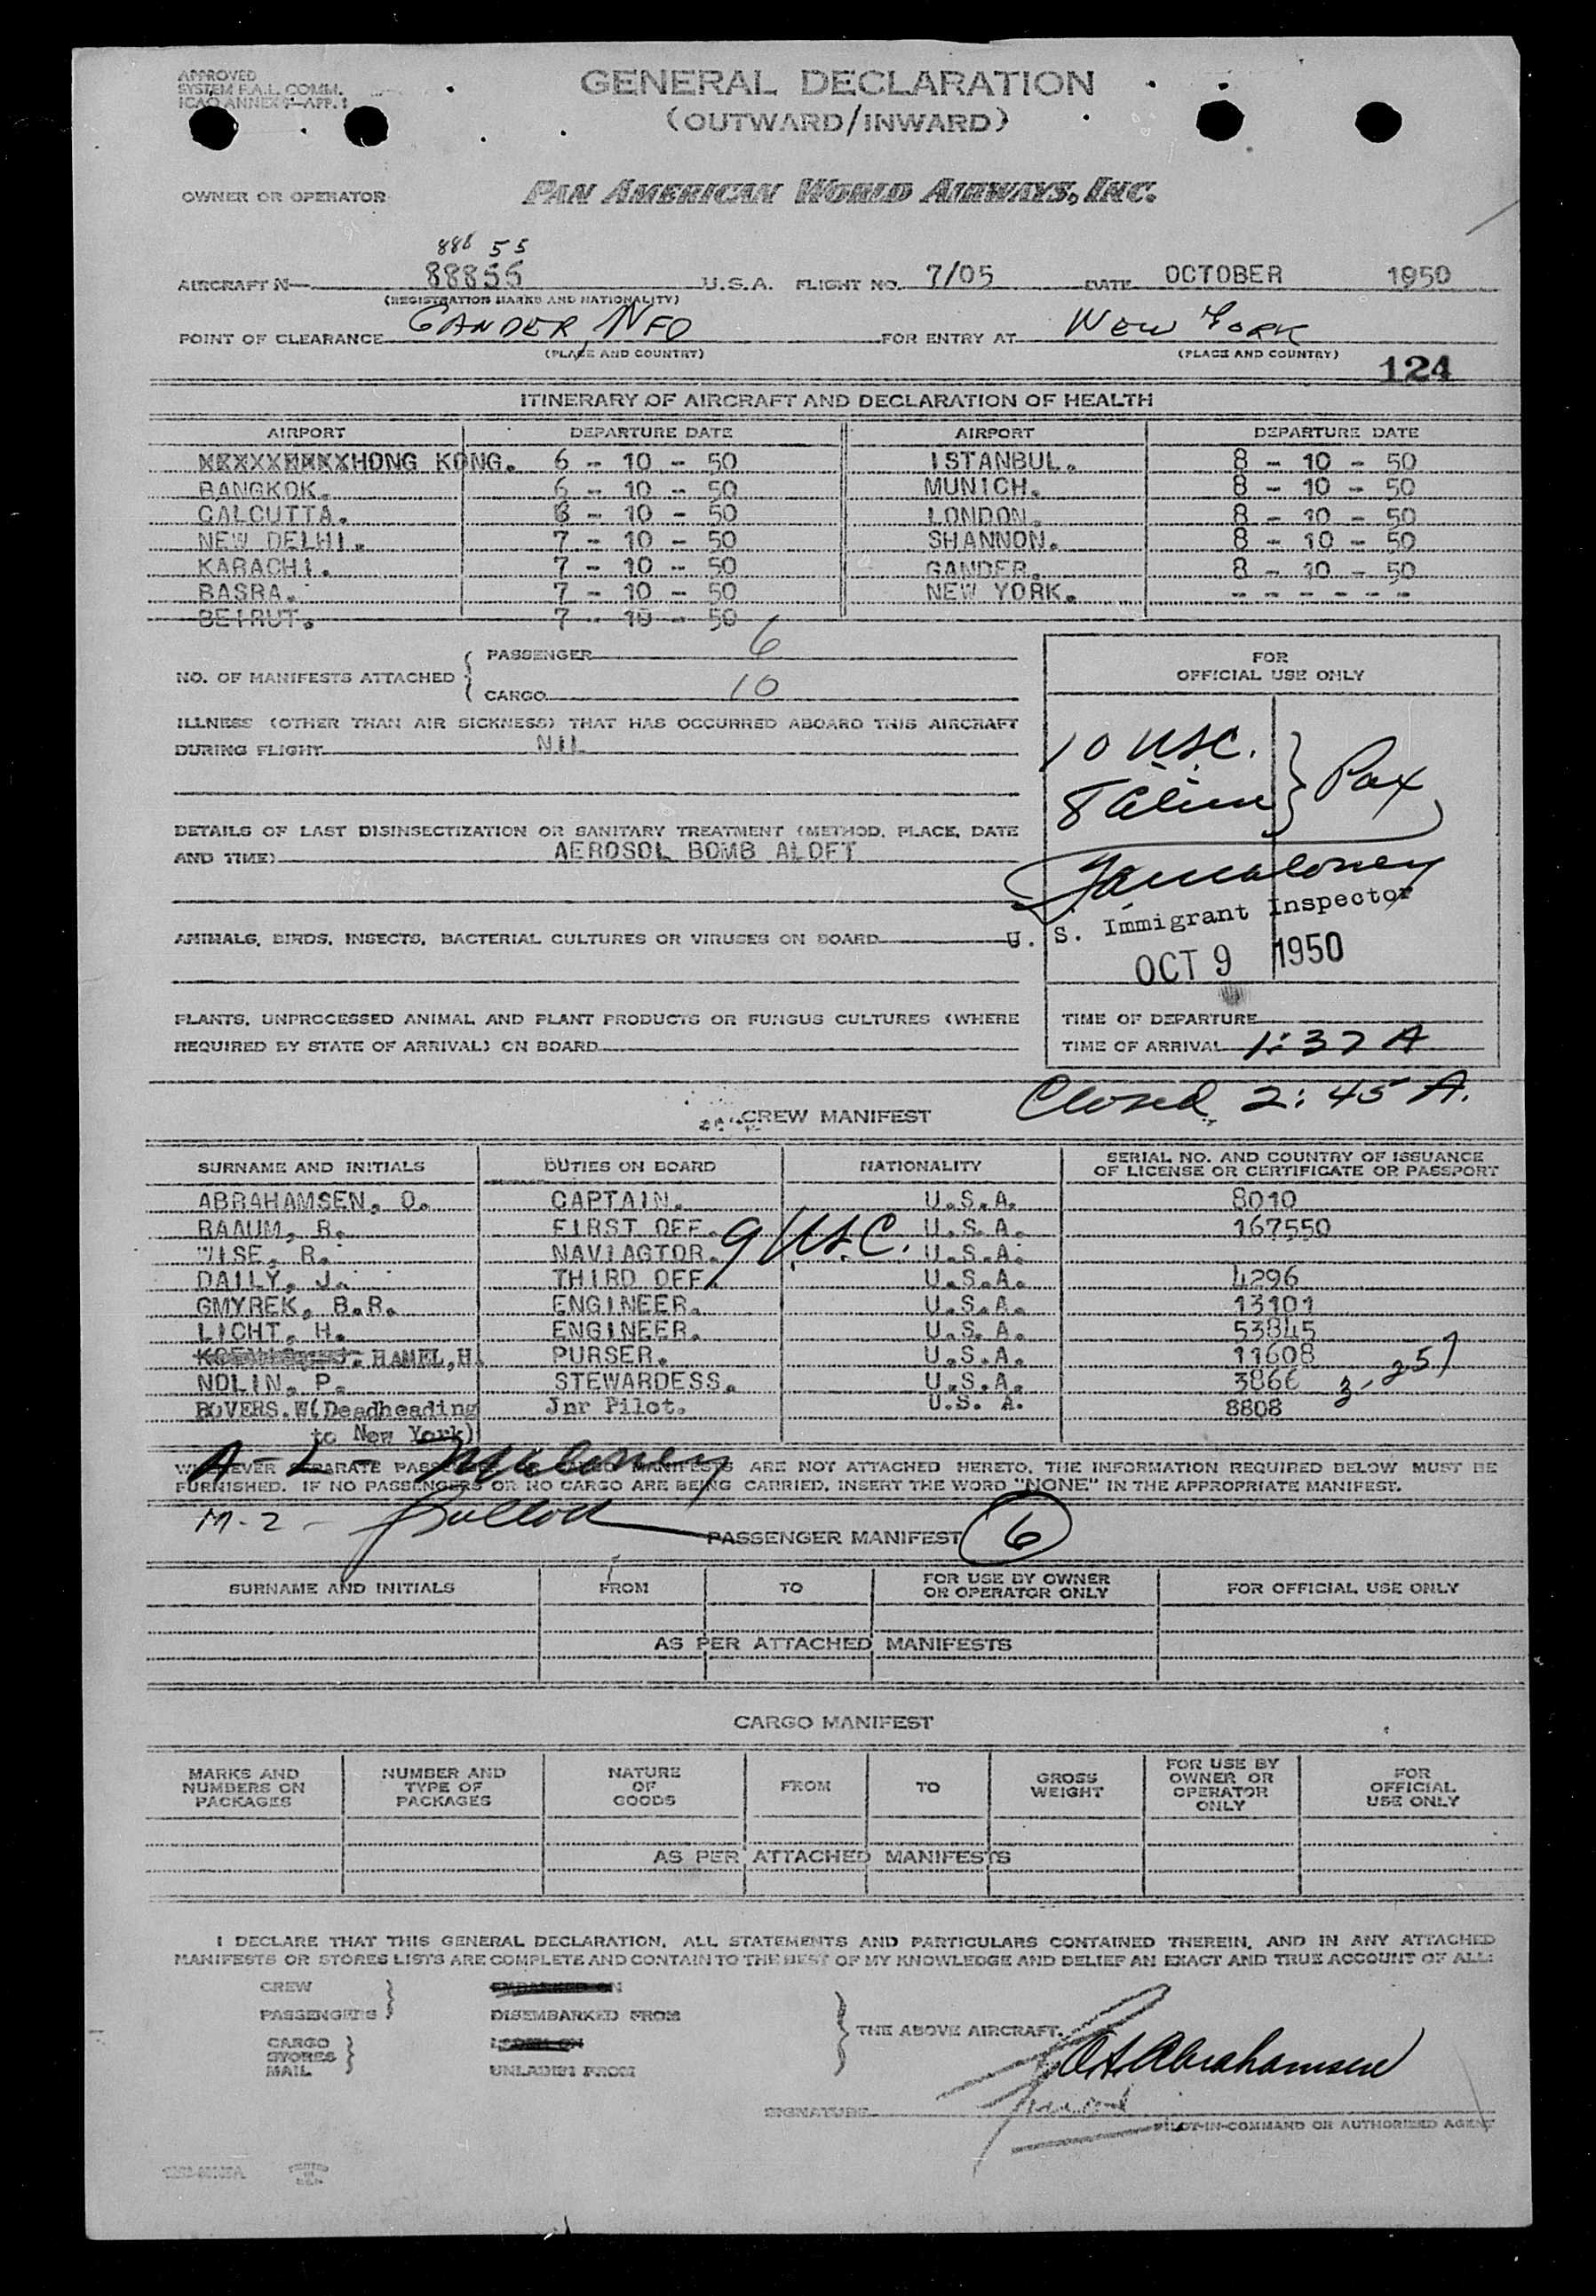 APPROVED
SYSTEM F.A.L. COMM.
ICAO ANNEX 9—APP. 1
GENERAL DECLARATION
(OUTWARD/INWARD)
OWNER OR OPERATOR
PAN AMERICAN WORLD AIRWAYS, INC.
888 55
AIRCRAFT N— 88855 U.S.A. FLIGHT NO. 7/05 DATE OCTOBER 1950
(REGISTRATION MARKS AND NATIONALITY)
POINT OF CLEARANCE GANDER, NFD FOR ENTRY AT NEW YORK
(PLACE AND COUNTRY) (PLACE AND COUNTRY)
124
ITINERARY OF AIRCRAFT AND DECLARATION OF HEALTH
AIRPORT DEPARTURE DATE AIRPORT DEPARTURE DATE
HONG KONG. 6 - 10 - 50 ISTANBUL. 8 - 10 - 50
BANGKOK. 6 - 10 - 50 MUNICH. 8 - 10 - 50
CALCUTTA. 6 - 10 - 50 LONDON. 8 - 10 - 50
NEW DELHI. 7 - 10 - 50 SHANNON. 8 - 10 - 50
KARACHI. 7 - 10 - 50 GANDER. 8 - 10 - 50
BASRA. 7 - 10 - 50 NEW YORK. - - - - - -
BEIRUT. 7 - 10 - 50
NO. OF MANIFESTS ATTACHED { PASSENGER 6
CARGO 10
FOR
OFFICIAL USE ONLY
ILLNESS (OTHER THAN AIR SICKNESS) THAT HAS OCCURRED ABOARD THIS AIRCRAFT
DURING FLIGHT NIL
10 USC.
8 Alien } Pax
DETAILS OF LAST DISINSECTIZATION OR SANITARY TREATMENT (METHOD, PLACE, DATE
AND TIME) AEROSOL BOMB ALOFT
Maloney
U. S. Immigrant Inspector
OCT 9 1950
ANIMALS, BIRDS, INSECTS, BACTERIAL CULTURES OR VIRUSES ON BOARD
PLANTS, UNPROCESSED ANIMAL AND PLANT PRODUCTS OR FUNGUS CULTURES (WHERE
REQUIRED BY STATE OF ARRIVAL) ON BOARD
TIME OF DEPARTURE
TIME OF ARRIVAL 1:37 A
Closed 2:45 A.
CREW MANIFEST
SURNAME AND INITIALS DUTIES ON BOARD NATIONALITY SERIAL NO. AND COUNTRY OF ISSUANCE
OF LICENSE OR CERTIFICATE OR PASSPORT
ABRAHAMSEN, O. CAPTAIN. U.S.A. 8010
BAAUM, R. FIRST OFF. U.S.A. 167550
9 U.S.C.
WISE, R. NAVIAGTOR. U.S.A.
DAILY, J. THIRD OFF. U.S.A. 4296
GMYREK, B.R. ENGINEER. U.S.A. 13101
LICHT, H. ENGINEER. U.S.A. 53845
HAMEL,H. PURSER. U.S.A. 11608
NOLIN, P. STEWARDESS. U.S.A. 3866
BOVERS.W(Deadheading Jnr Pilot. U.S. A. 8808
to New York)
A - L - Maloney
WHENEVER SEPARATE PASSENGER OR CARGO MANIFESTS ARE NOT ATTACHED HERETO, THE INFORMATION REQUIRED BELOW MUST BE
FURNISHED. IF NO PASSENGERS OR NO CARGO ARE BEING CARRIED, INSERT THE WORD "NONE" IN THE APPROPRIATE MANIFEST.
M-2 -
PASSENGER MANIFEST 6
SURNAME AND INITIALS FROM TO FOR USE BY OWNER
OR OPERATOR ONLY FOR OFFICIAL USE ONLY
AS PER ATTACHED MANIFESTS
CARGO MANIFEST
MARKS AND
NUMBERS ON
PACKAGES
NUMBER AND
TYPE OF
PACKAGES
NATURE
OF
GOODS
FROM
TO
GROSS
WEIGHT
FOR USE BY
OWNER OR
OPERATOR
ONLY
FOR
OFFICIAL
USE ONLY
AS PER ATTACHED MANIFESTS
I DECLARE THAT THIS GENERAL DECLARATION, ALL STATEMENTS AND PARTICULARS CONTAINED THEREIN, AND IN ANY ATTACHED
MANIFESTS OR STORES LISTS ARE COMPLETE AND CONTAIN TO THE BEST OF MY KNOWLEDGE AND BELIEF AN EXACT AND TRUE ACCOUNT OF ALL:
CREW
PASSENGERS
DISEMBARKED FROM
CARGO
STORES
MAIL
UNLADEN FROM
THE ABOVE AIRCRAFT.
O A Abrahamsen
SIGNATURE
PILOT-IN-COMMAND OR AUTHORIZED AGENT
PRINTED
IN
U.S.A.